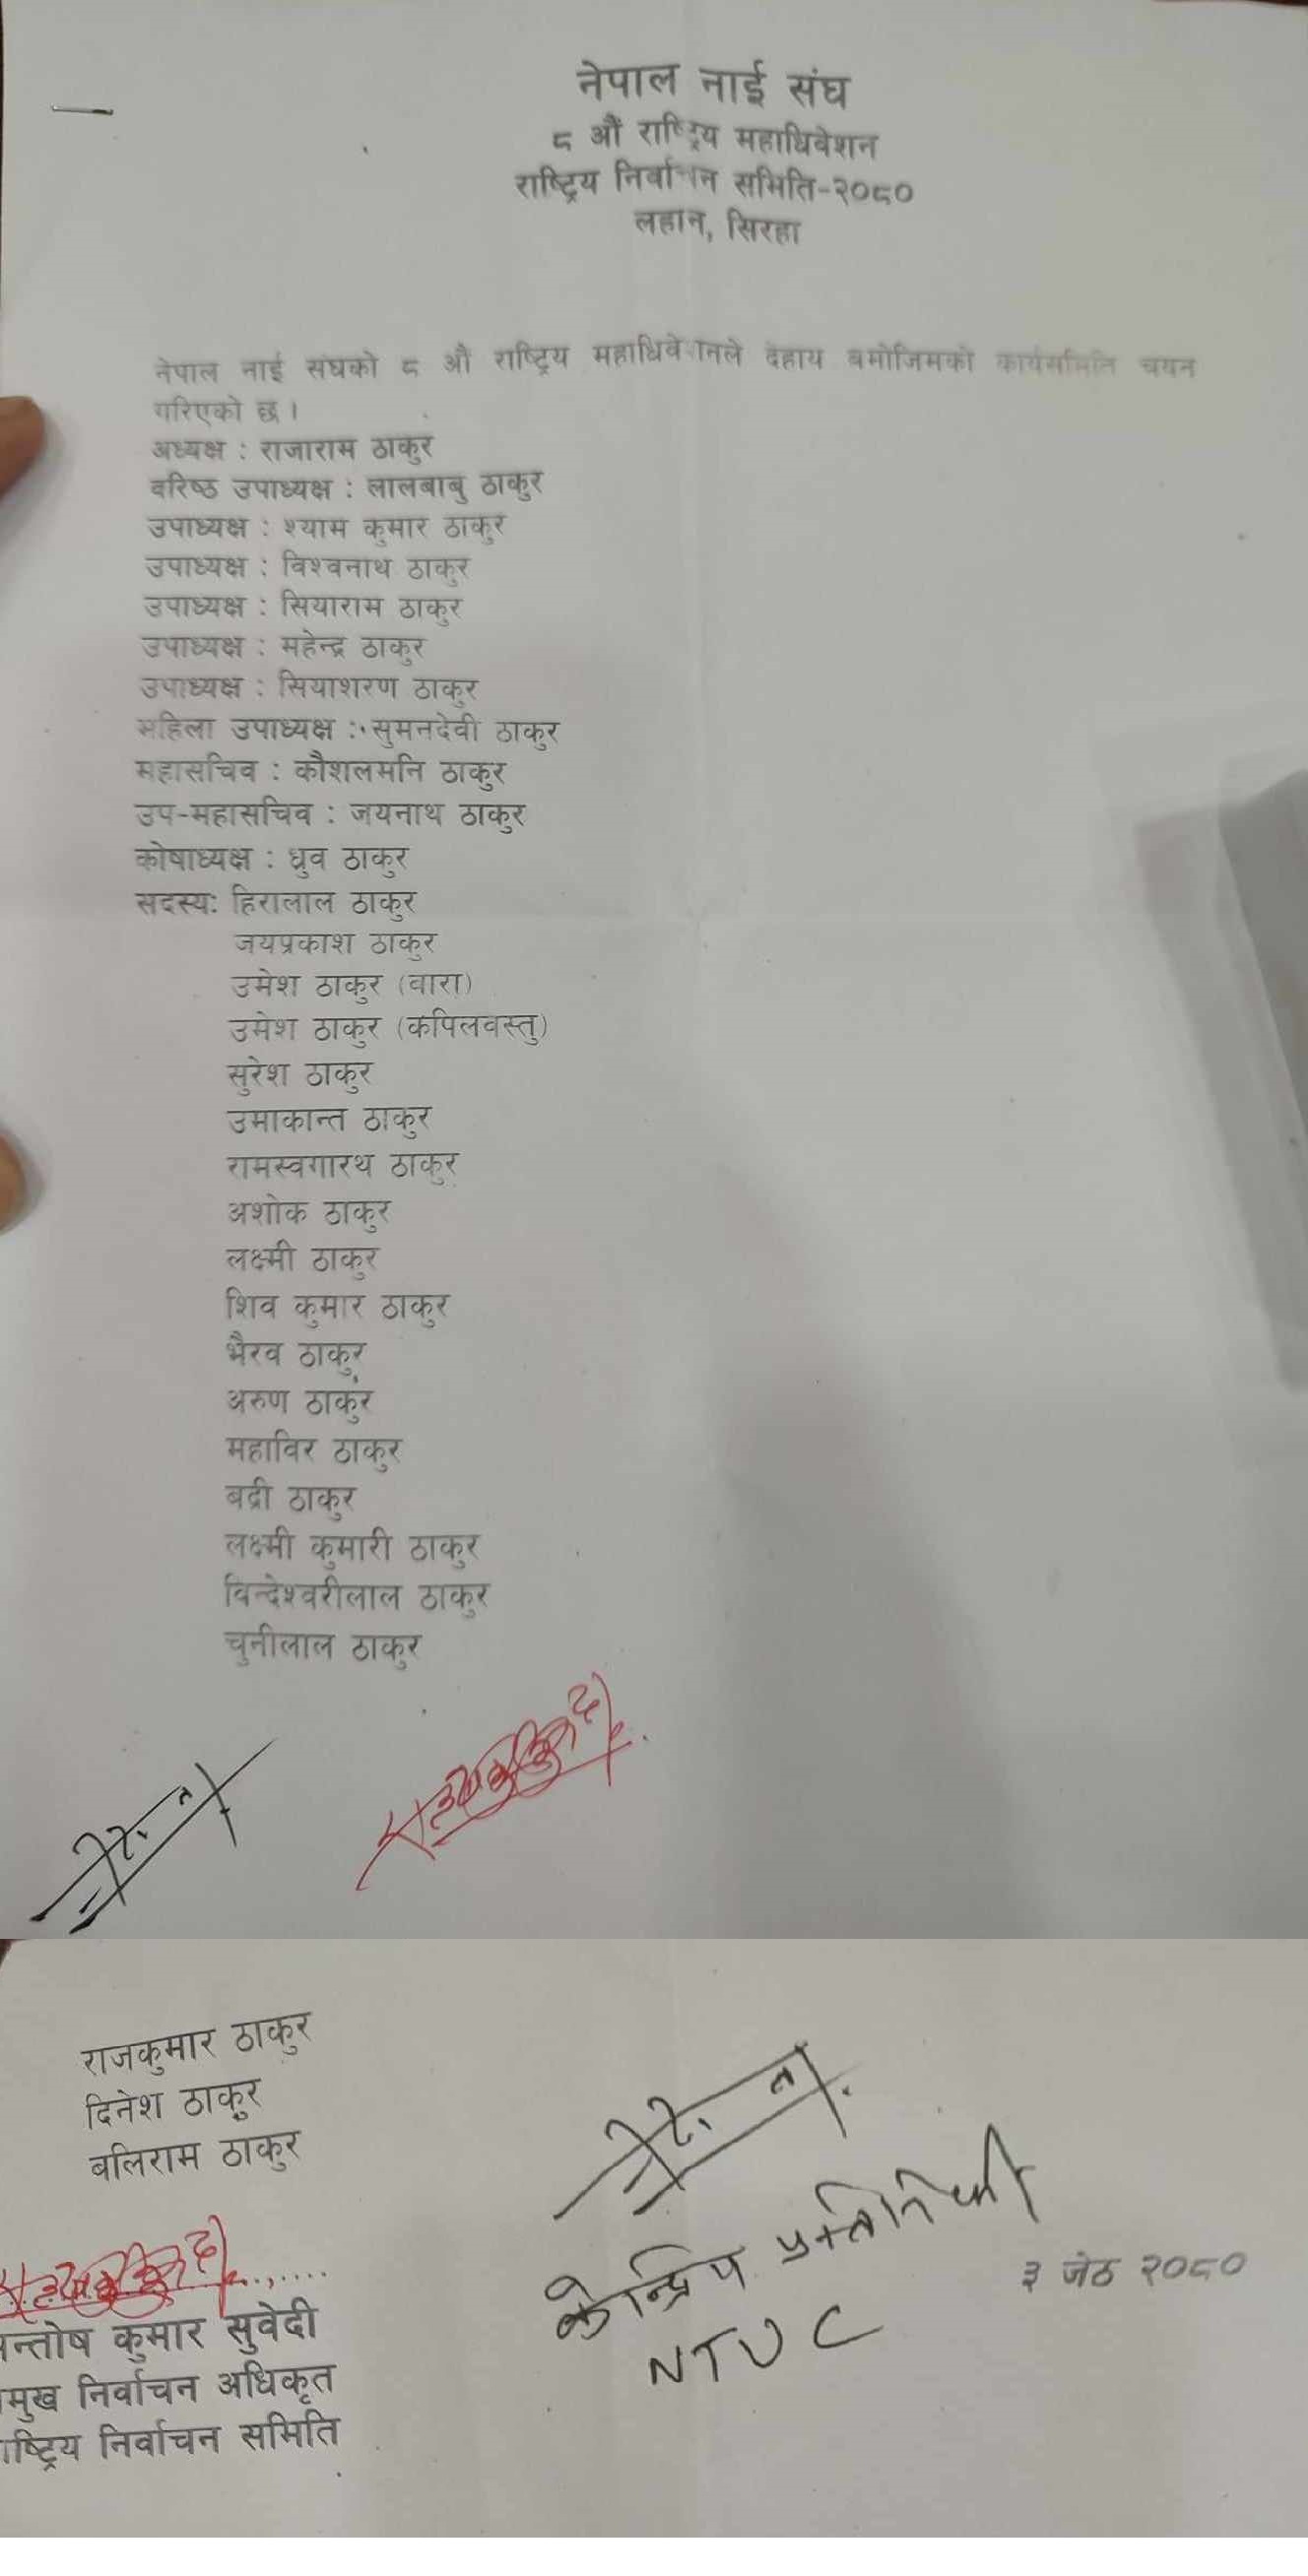 नेपाल नाई संघ
८ औं राष्ट्रिय महाधिवेशन
राष्ट्रिय निर्वाचन समिति-२०८०
लहान, सिरहा
नेपाल नाई संघको ८ औ राष्ट्रिय महाधिवेशनले देहाय बमोजिमको कार्यसमिति चयन
गरिएको छ ।
अध्यक्ष : राजाराम ठाकुर
वरिष्ठ उपाध्यक्ष : लालबाबु ठाकुर
उपाध्यक्ष : श्याम कुमार ठाकुर
उपाध्यक्ष : विश्वनाथ ठाकुर
उपाध्यक्ष : सियाराम ठाकुर
उपाध्यक्ष : महेन्द्र ठाकुर
उपाध्यक्ष : सियाशरण ठाकुर
महिला उपाध्यक्ष : सुमनदेवी ठाकुर
महासचिव : कौशलमनि ठाकुर
उप-महासचिव : जयनाथ ठाकुर
कोषाध्यक्ष : ध्रुव ठाकुर
सदस्य: हिरालाल ठाकुर
जयप्रकाश ठाकुर
उमेश ठाकुर (वारा)
उमेश ठाकुर (कपिलवस्तु)
सुरेश ठाकुर
उमाकान्त ठाकुर
रामस्वगारथ ठाकुर
अशोक ठाकुर
लक्ष्मी ठाकुर
शिव कुमार ठाकुर
भैरव ठाकुर
अरुण ठाकुर
महाविर ठाकुर
बद्री ठाकुर
लक्ष्मी कुमारी ठाकुर
विन्देश्वरीलाल ठाकुर
चुनीलाल ठाकुर
राजकुमार ठाकुर
दिनेश ठाकुर
बलिराम ठाकुर
न्तोष कुमार सुवेदी
मुख निर्वाचन अधिकृत
ाष्ट्रिय निर्वाचन समिति
केन्द्रिय प्रतिनिधी
NTUC
३ जेठ २०८०